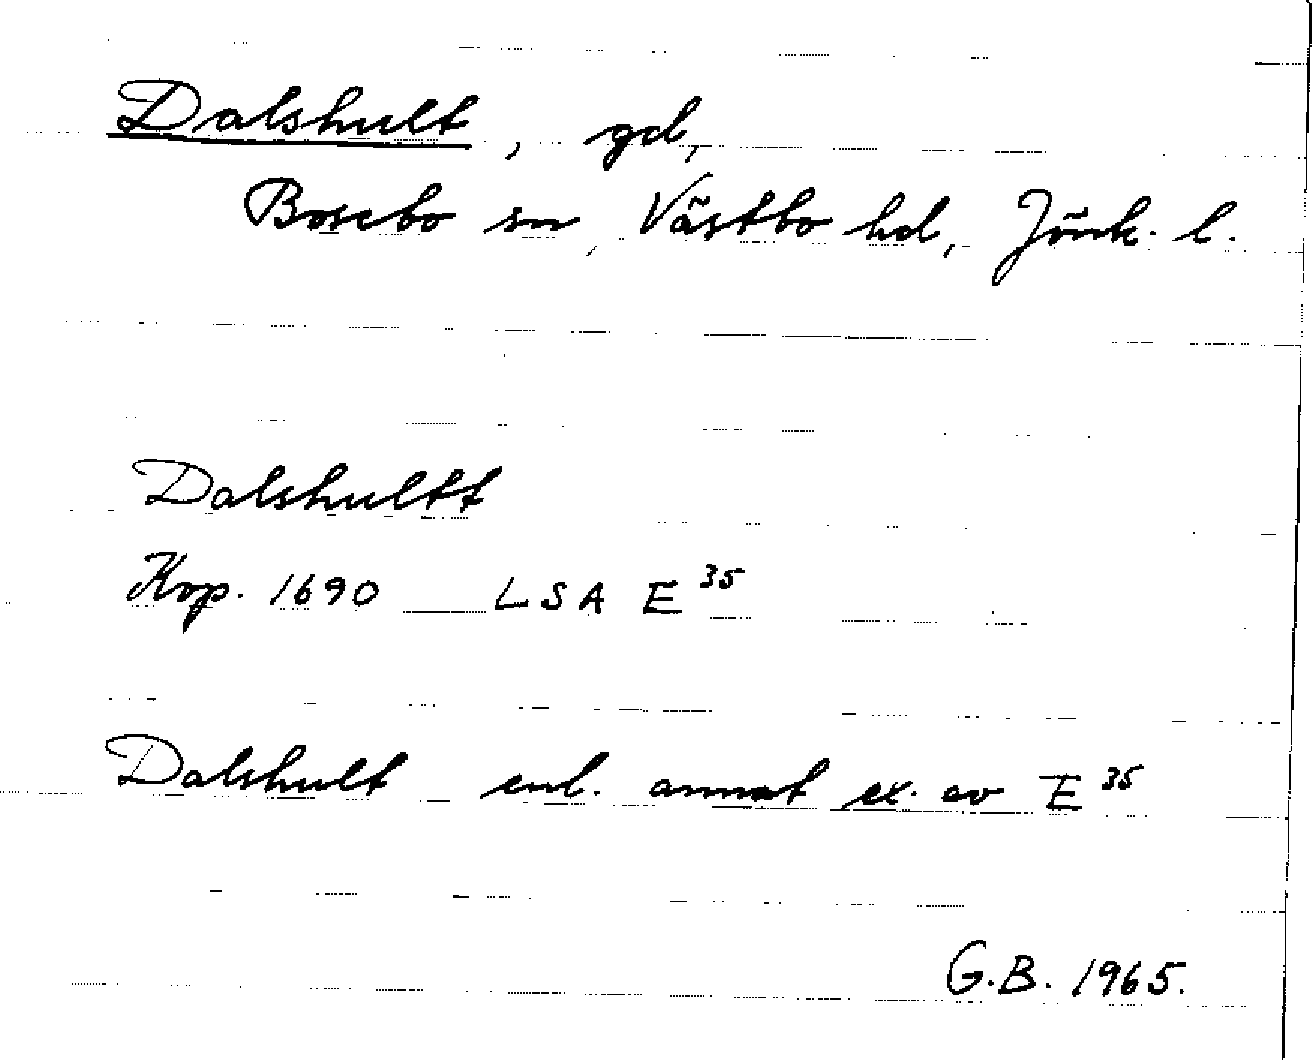 Dalshult, gd,
Bosebo sn, Västbo hd, Jönk. l.
Dalshultt
Kop. 1690 LSA E 35
Dalshult enl. annat ex. av E 35
G.B. 1965.